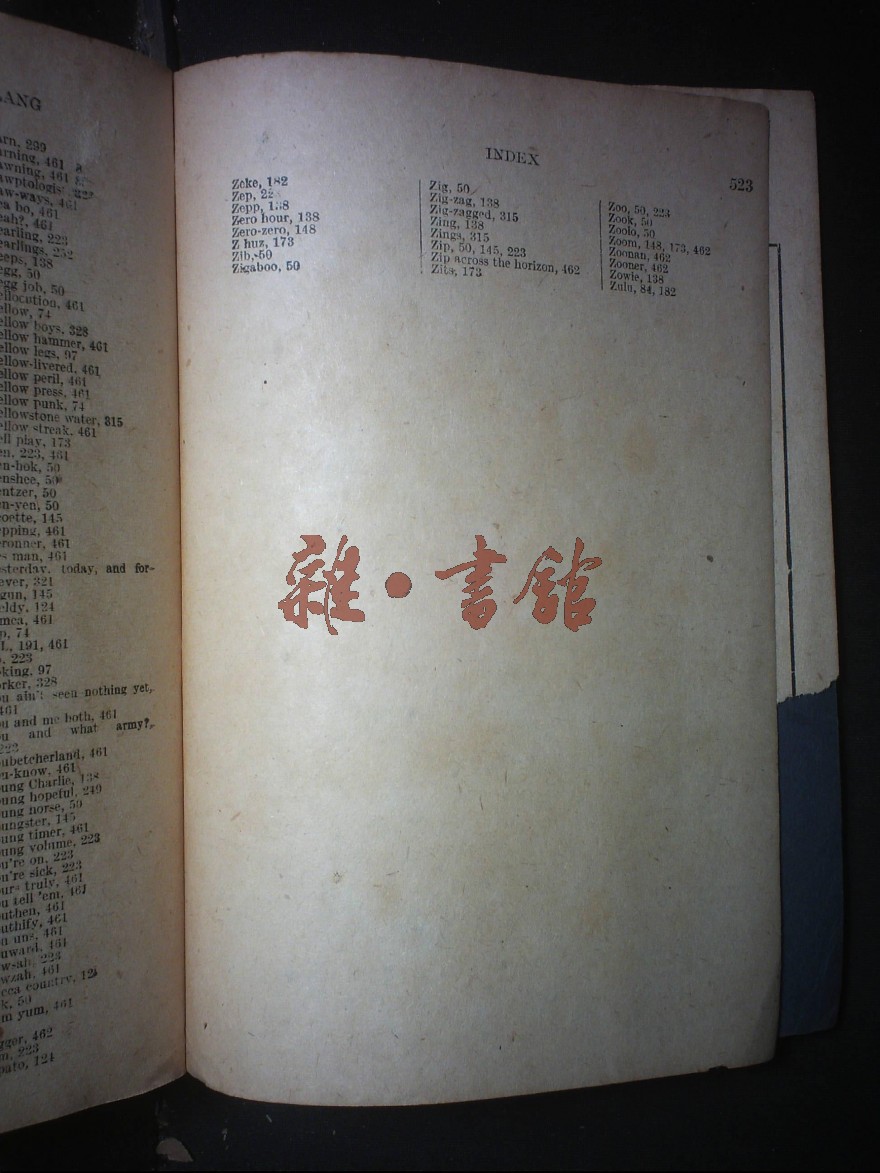 LANG
arn, 299
arning, 461
awning, 461
aw-ways, 461
ea bo, 461
eah?, 461
earling, 223
earlings, 252
eeps, 138
egg, 50
egg job, 50
ellocution, 461
ellow, 74
ellow boys, 328
ellow hammer, 461
ellow legs, 97
ellow-livered, 461
ellow peril, 461
ellow press, 461
ellow punk, 74
ellowstone water, 315
ellow streak, 461
ell play, 173
en, 223, 461
en-bok, 50
enshee, 50
entzer, 50
en-yen, 50
eoette, 145
epping, 461
eronner, 461
es man, 461
esterday, today, and for-
ever, 321
gun, 145
ieldy, 124
mca, 461
p, 74
L, 191, 461
o, 223
oking, 97
orker, 328
ou ain't seen nothing yet,
461
ou and me both, 461
ou and what army?,
223
oubetcherland, 461
ou-know, 461
oung Charlie, 138
oung hopeful, 249
oung horse, 50
oungster, 145
oung timer, 461
oung volume, 223
ou're on, 223
ou're sick, 223
ours truly, 461
ou tell 'em, 461
outhen, 461
outhify, 461
ou uns, 461
ouward, 461
ow-ah, 223
owzah, 461
cca country, 124
k, 50
m yum, 461
gger, 462
n, 223
pato, 124
INDEX
523
Zeke, 182
Zep,
Zepp, 138
Zero hour, 138
Zero-zero, 148
Z huz, 173
Zib, 50
Zigaboo, 50
Zig, 50
Zig-zag, 138
Zig-zagged, 315
Zing, 138
Zings, 315
Zip, 50, 145, 223
Zip across the horizon, 462
Zits, 173
Zoo, 50, 223
Zook, 50
Zoolo, 50
Zoom, 148, 173, 462
Zoonan, 462
Zooner, 462
Zowie, 138
Zulu, 84, 182
雜·書館